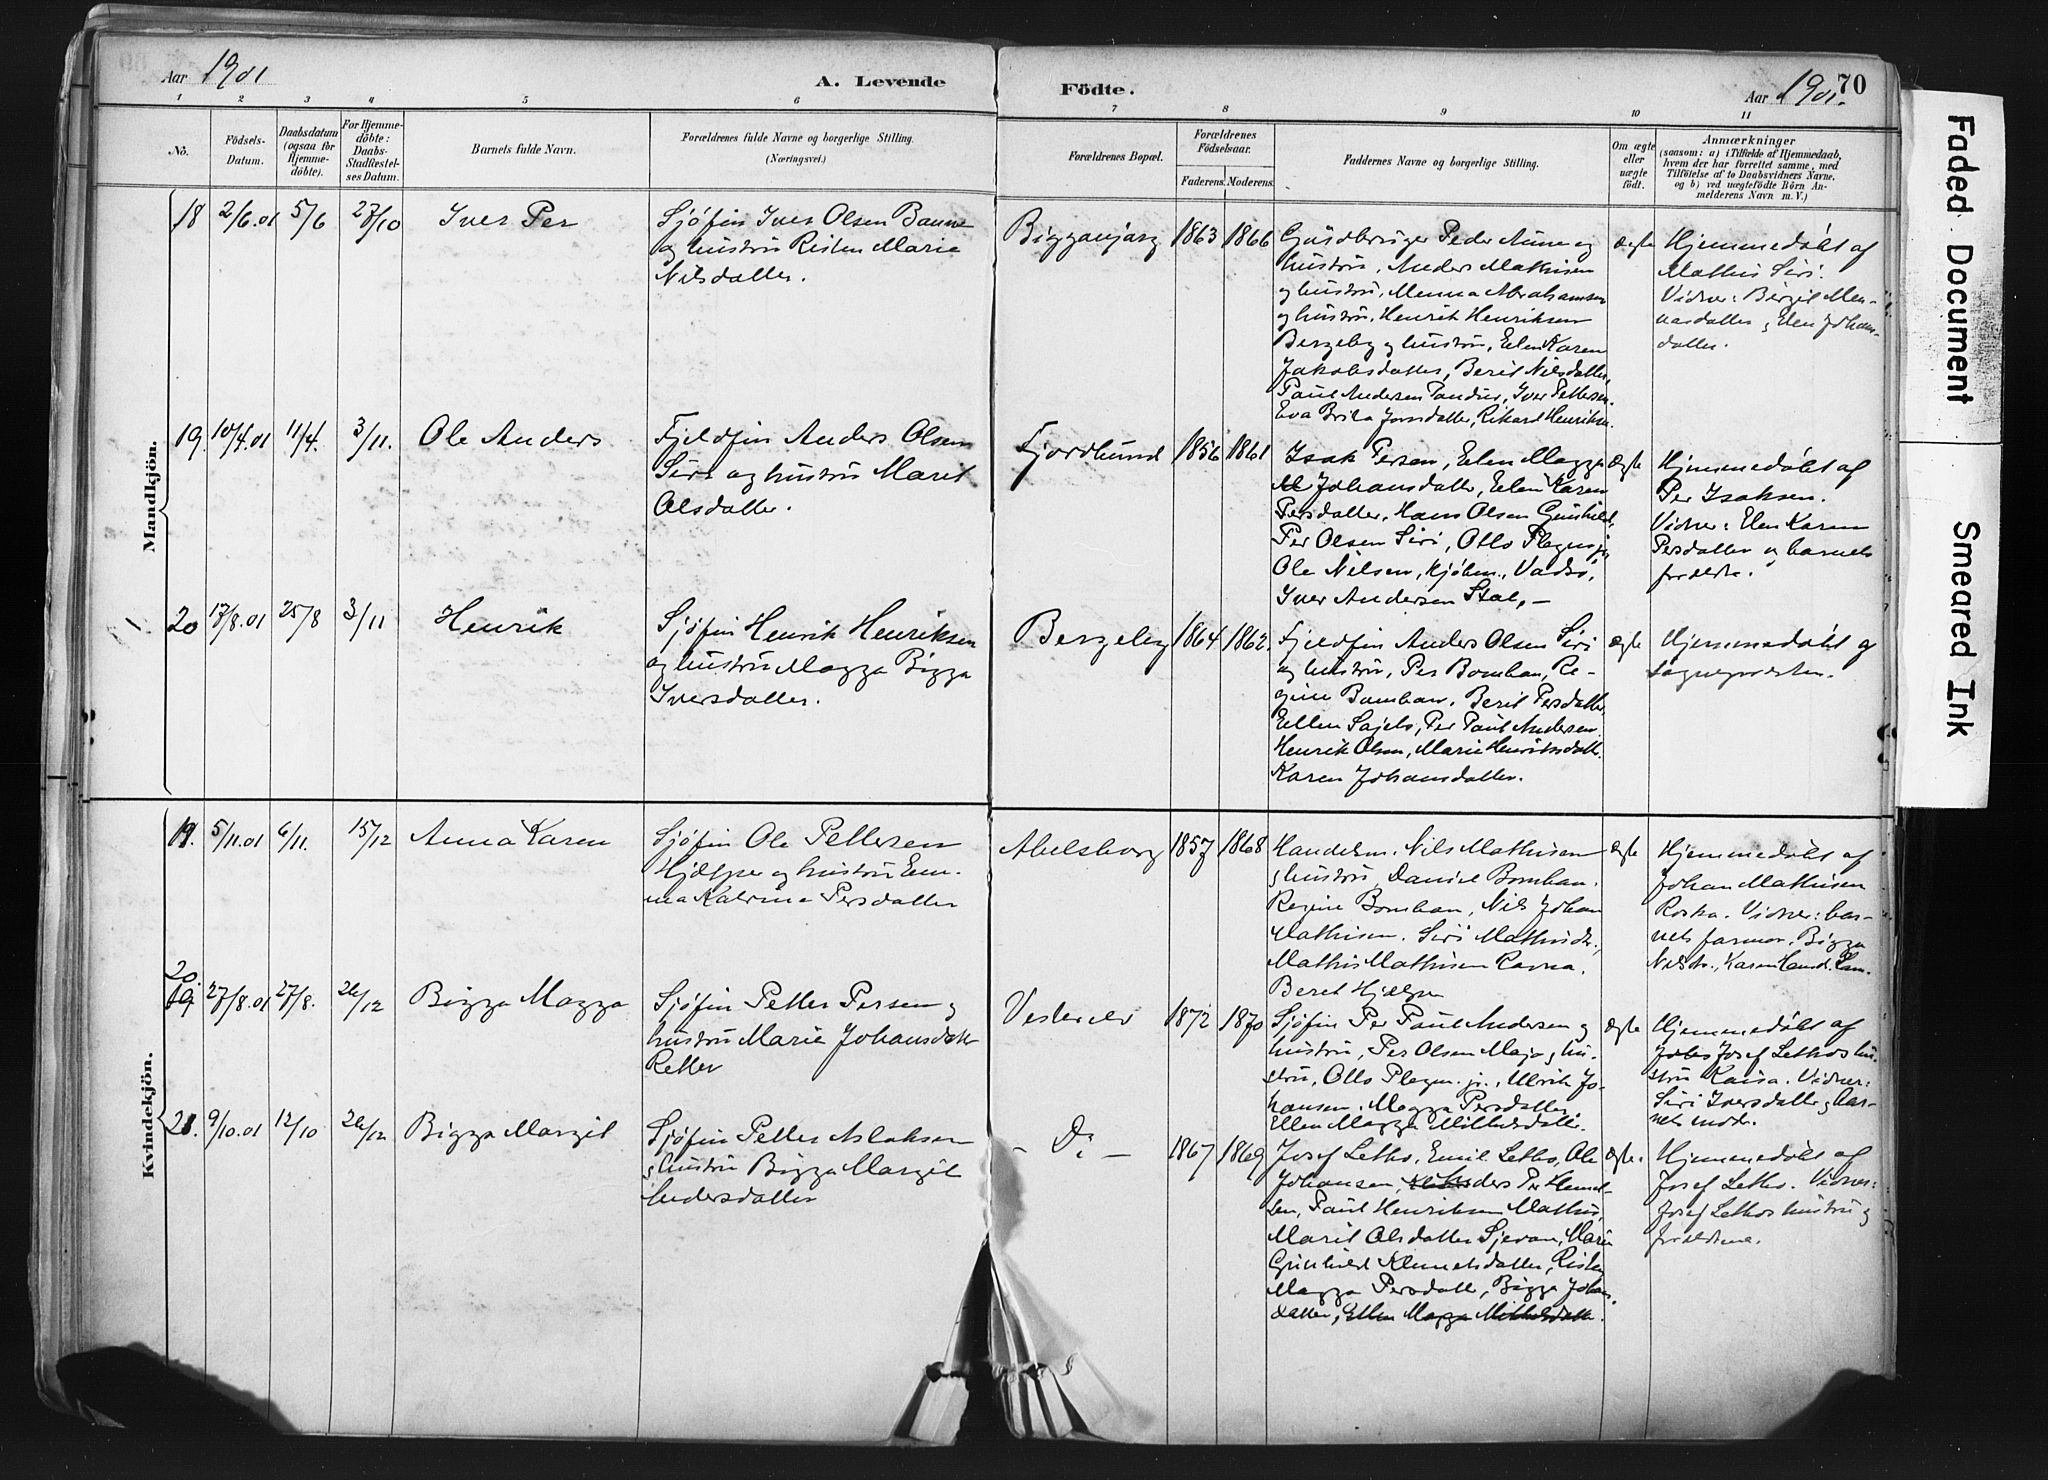 Aar 1901
A. Levende
Födte.
Aar 1901.
70
1 2 3 4 5 6 7 8 9 10 11
No.
Födsels-
Datum.
Daabsdatum
(ogsaa för
Hjemme-
döbte).
For Hjemme-
döbte:
Daabs-
Stadfæstel-
ses Datum.
Barnets fulde Navn.
Forældrenes fulde Navne og borgerlige Stilling.
(Næringsvei.)
Forældrenes Bopæl.
Forældrenes
Födselsaar.
Faderens. Moderens.
Faddernes Navne og borgerlige Stilling.
Om ægte
eller
uægte
födt.
Anmærkninger
(saasom: a) i Tilfælde af Hjemmedaab,
hvem der har forrettet samme, med
Tilföielse af to Daabsvidners Navne,
og b) ved uægtefödte Börn An-
melderens Navn m. V.)
Mandkjön.
18 2/6.01 5/6 27/10 Iver Per
Sjøfin Iver Olsen Banne
og hustru Risten Marie
Nilsdatter.
Bigganjarg 1863 1866
Gaardbruger Peder Aune og
hustru, Anders Mathisen
og hustru, Menna Abrahamsen
og hustru, Henrik Henriksen
Bergeby og hustru, Elen Karen
Jakobsdatter, Berit Nilsdatter,
Paul Andersen Pandur, Iver Pettersen.
Eva Brita Jonsdatter, Rikard Henriksen.
ægte
Hjemmedøbt af
Mathis Siri.
Vidner: Birgit Men-
nasdatter, Elen Johans-
datter.
19. 10/4.01 11/4. 3/11. Ole Anders
Fjeldfin Anders Olsen
Siri og hustru Marit
Olsdatter.
Fjordbund 1856 1861
Isak Persen, Elen Magga
Johansdatter, Elen Karen
Persdatter, Hans Olsen Gunhild,
Per Olsen Siri, Otto Plagens jr.
Ole Nilsen, kjøbm., Vadsø,
Iver Andersen Stal,—
ægte
Hjemmedøbt af
Per Isaksen.
Vidner: Elen Karen
Persdatter og barnets
forældre.
20 17/8.01 25/8 3/11 Henrik
Sjøfin Henrik Henriksen
og hustru Magga Bigga
Iversdatter.
Bergeby 1864 1862.
Fjeldfin Anders Olsen Siri
og hustru, Per Bomban, Re-
gine Bomban, Berit Persdatter,
Ellen Sajets, Per Paul Andersen,
Henrik Olsen, Marie Henriksdatt.
Karen Johansdatter.
ægte
Hjemmedøbt af
sognepresten.
Kvindekjön.
19. 5/11.01 6/11. 15/12 Anna Karen
Sjøfin Ole Pettersen
Hjelper og hustru Em-
ma Katrina Persdatter
Abelsborg 1857 1868
Handelsm. Nils Mathisen
og hustru Daniel Bomban.
Regine Bomban, Nils Johan
Mathisen. Siri Mathisdr.,
Mathis Mathisen Ravna.
Beret Hjelper
ægte
Hjemmedøbt af
Johan Mathisen
Roska. Vidner: bar-
nets farmor, Bigga
20. 27/8.01 27/8. 26/12 Bigga Magga
Sjøfin Petter Persen og
hustru Marie Johansdatter
Retter
Vesterelv 1872 1870
Sjøfin Per Paul Andersen og
hustru, Per Olsen Maja og hu-
stru, Otto Plagen. jr., Ulrik Jo-
hansen, Magga Persdatter,
Ellen Magga Mikkelsdatter.
ægte
Hjemmedøbt af
Josef Lethos hu-
stru Kaisa. Vidner:
Siri Iversdatter og bar-
nets moder.
21. 9/10.01 12/10 26/12 Bigga Margit
Sjøfin Petter Aslaksen
og hustru Bigga Margit
Andersdatter
— Do — 1867 1869
Josef Letho, Emil Letho, Ole
Johansen, Per
Paul Henriksen Mathis,
Marit Olsdatter Sjevan, Marie
Gunhild Klemetsdatter, Risten
Magga Persdatter, Bigga Johans-
datter, Ellen Magga Mikkelsdatter.
ægte.
Hjemmedøbt af
Josef Letho. Vidner:
Josef Lethos hustru og
forældrene.
Faded Document
Smeared Ink